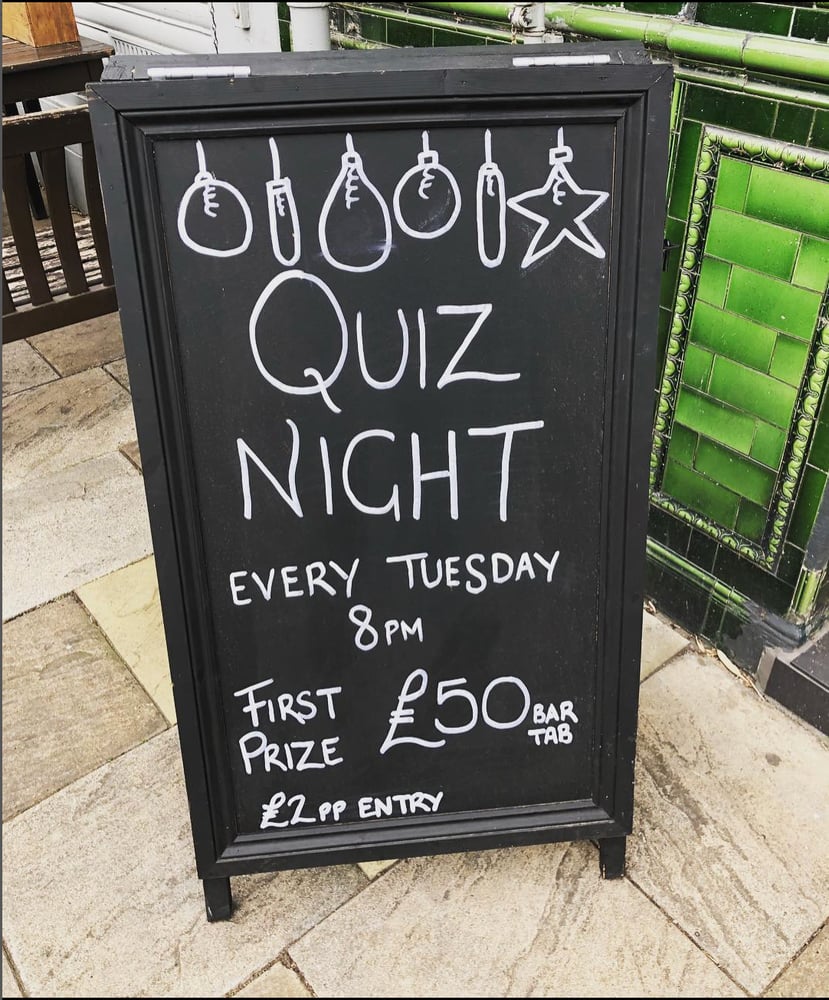 QUIZ
NIGHT
EVERY TUESDAY
8PM
FIRST
PRIZE £50 BAR
TAB
£2PP ENTRY